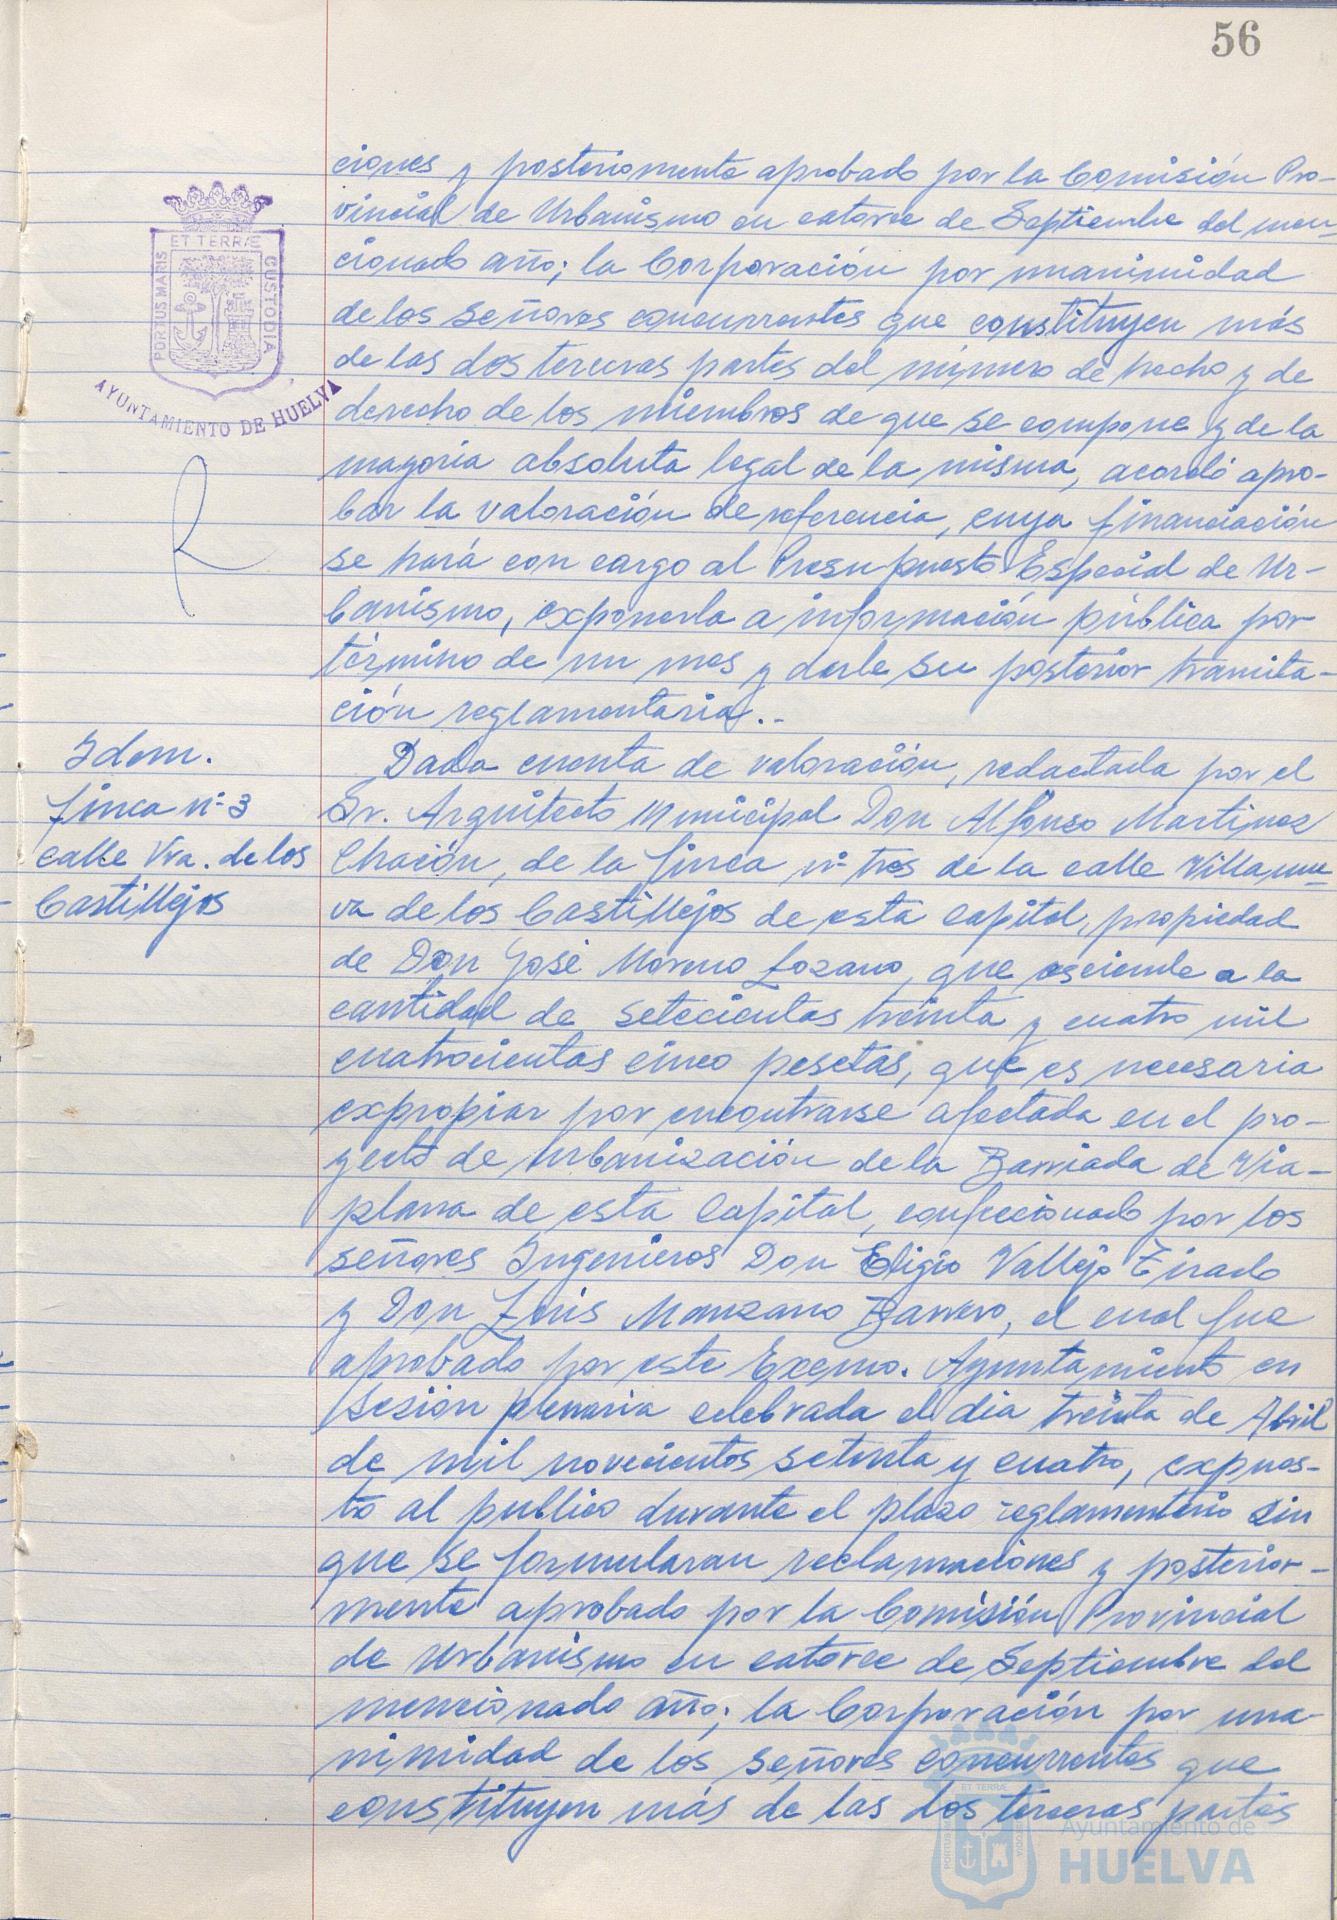 56
ciones y posteriormente aprobado por la Comisión Pro-
vincial de Urbanismo en catorce de Septiembre del men-
cionado año; la Corporación por unanimidad
de los señores concurrentes que constituyen más
de las dos terceras partes del número de hecho y de
derecho de los miembros de que se compone y de la
mayoria absoluta legal de la misma, acordó apro-
bar la valoración de referencia, cuya financiación
se hará con cargo al Presupuesto Especial de Ur-
banismo, exponerla a información pública por
término de un mes y darle su posterior tramita-
ción reglamentaria..
ET TERRÆ
PORTUS MARIS
CUSTODIA
AYUNTAMIENTO DE HUELVA
Idem.
finca nº 3
calle Vva. de los
Castillejos
Dada cuenta de valoración, redactada por el
Sr. Arquitecto Municipal Don Alfonso Martinez
Chación, de la finca nº tres de la calle Villanue-
va de los Castillejos de esta Capital, propiedad
de Don José Moreno Lozano, que asciende a la
cantidad de setecientas treinta y cuatro mil
cuatrocientas cinco pesetas, que es necesaria
expropiar por encontrarse afectada en el pro-
yecto de urbanización de la Barriada de Via-
plana de esta Capital, confeccionado por los
señores Ingenieros Don Eligio Vallejo Tirado
y Don Luis Manzano Barrero, el cual fue
aprobado por este Excmo. Ayuntamiento en
sesion plenaria celebrada el dia treinta de Abril
de mil novecientos setenta y cuatro, expues-
to al publico durante el plazo reglamentario sin
que se formularan reclamaciones y posterior-
mente aprobado por la Comisión Provincial
de Urbanismo en catorce de Septiembre del
mencionado año; la Corporación por una-
nimidad de los señores concurrentes que
constituyen más de las dos terceras partes
Ayuntamiento de
HUELVA